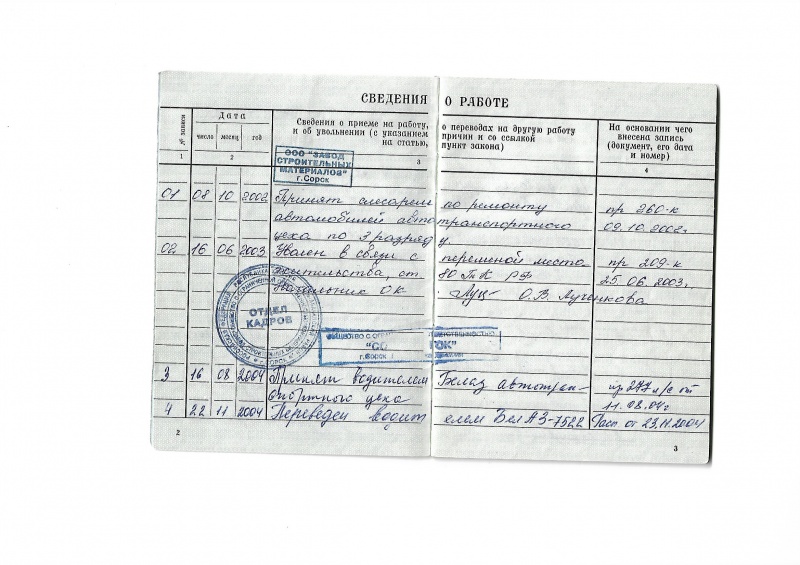 СВЕДЕНИЯ О РАБОТЕ
№ записи
Дата
число месяц год
Сведения о приеме на работу, о переводах на другую работу
и об увольнении (с указанием причин и со ссылкой
на статью, пункт закона)
На основании чего
внесена запись
(документ, его дата
и номер)
1 2 3 4
ООО "ЗАВОД
СТРОИТЕЛЬНЫХ
МАТЕРИАЛОВ"
г.Сорск
01 08 10 2002 Принят слесарем по ремонту пр 260-к
автомобилей автотранспортного 09.10.2002г
цеха по 3 разряду
02 16 06 2003 Уволен в связи с переменой места пр 209-к
жительства, ст 80 ТК РФ 25.06.2003г
Начальник ОК О.В. Лученкова
ОТДЕЛ
КАДРОВ
ОБЩЕСТВО С ОГРАНИЧЕННОЙ ОТВЕТСТВЕННОСТЬЮ
г.Сорск
3 16 08 2004 Принят водителем Белаз автотран- пр 277 л/с от
спортного цеха 11.08.04г
4 22 11 2004 Переведен водителем БелАЗ-7522 от 23.11.2004
2 3